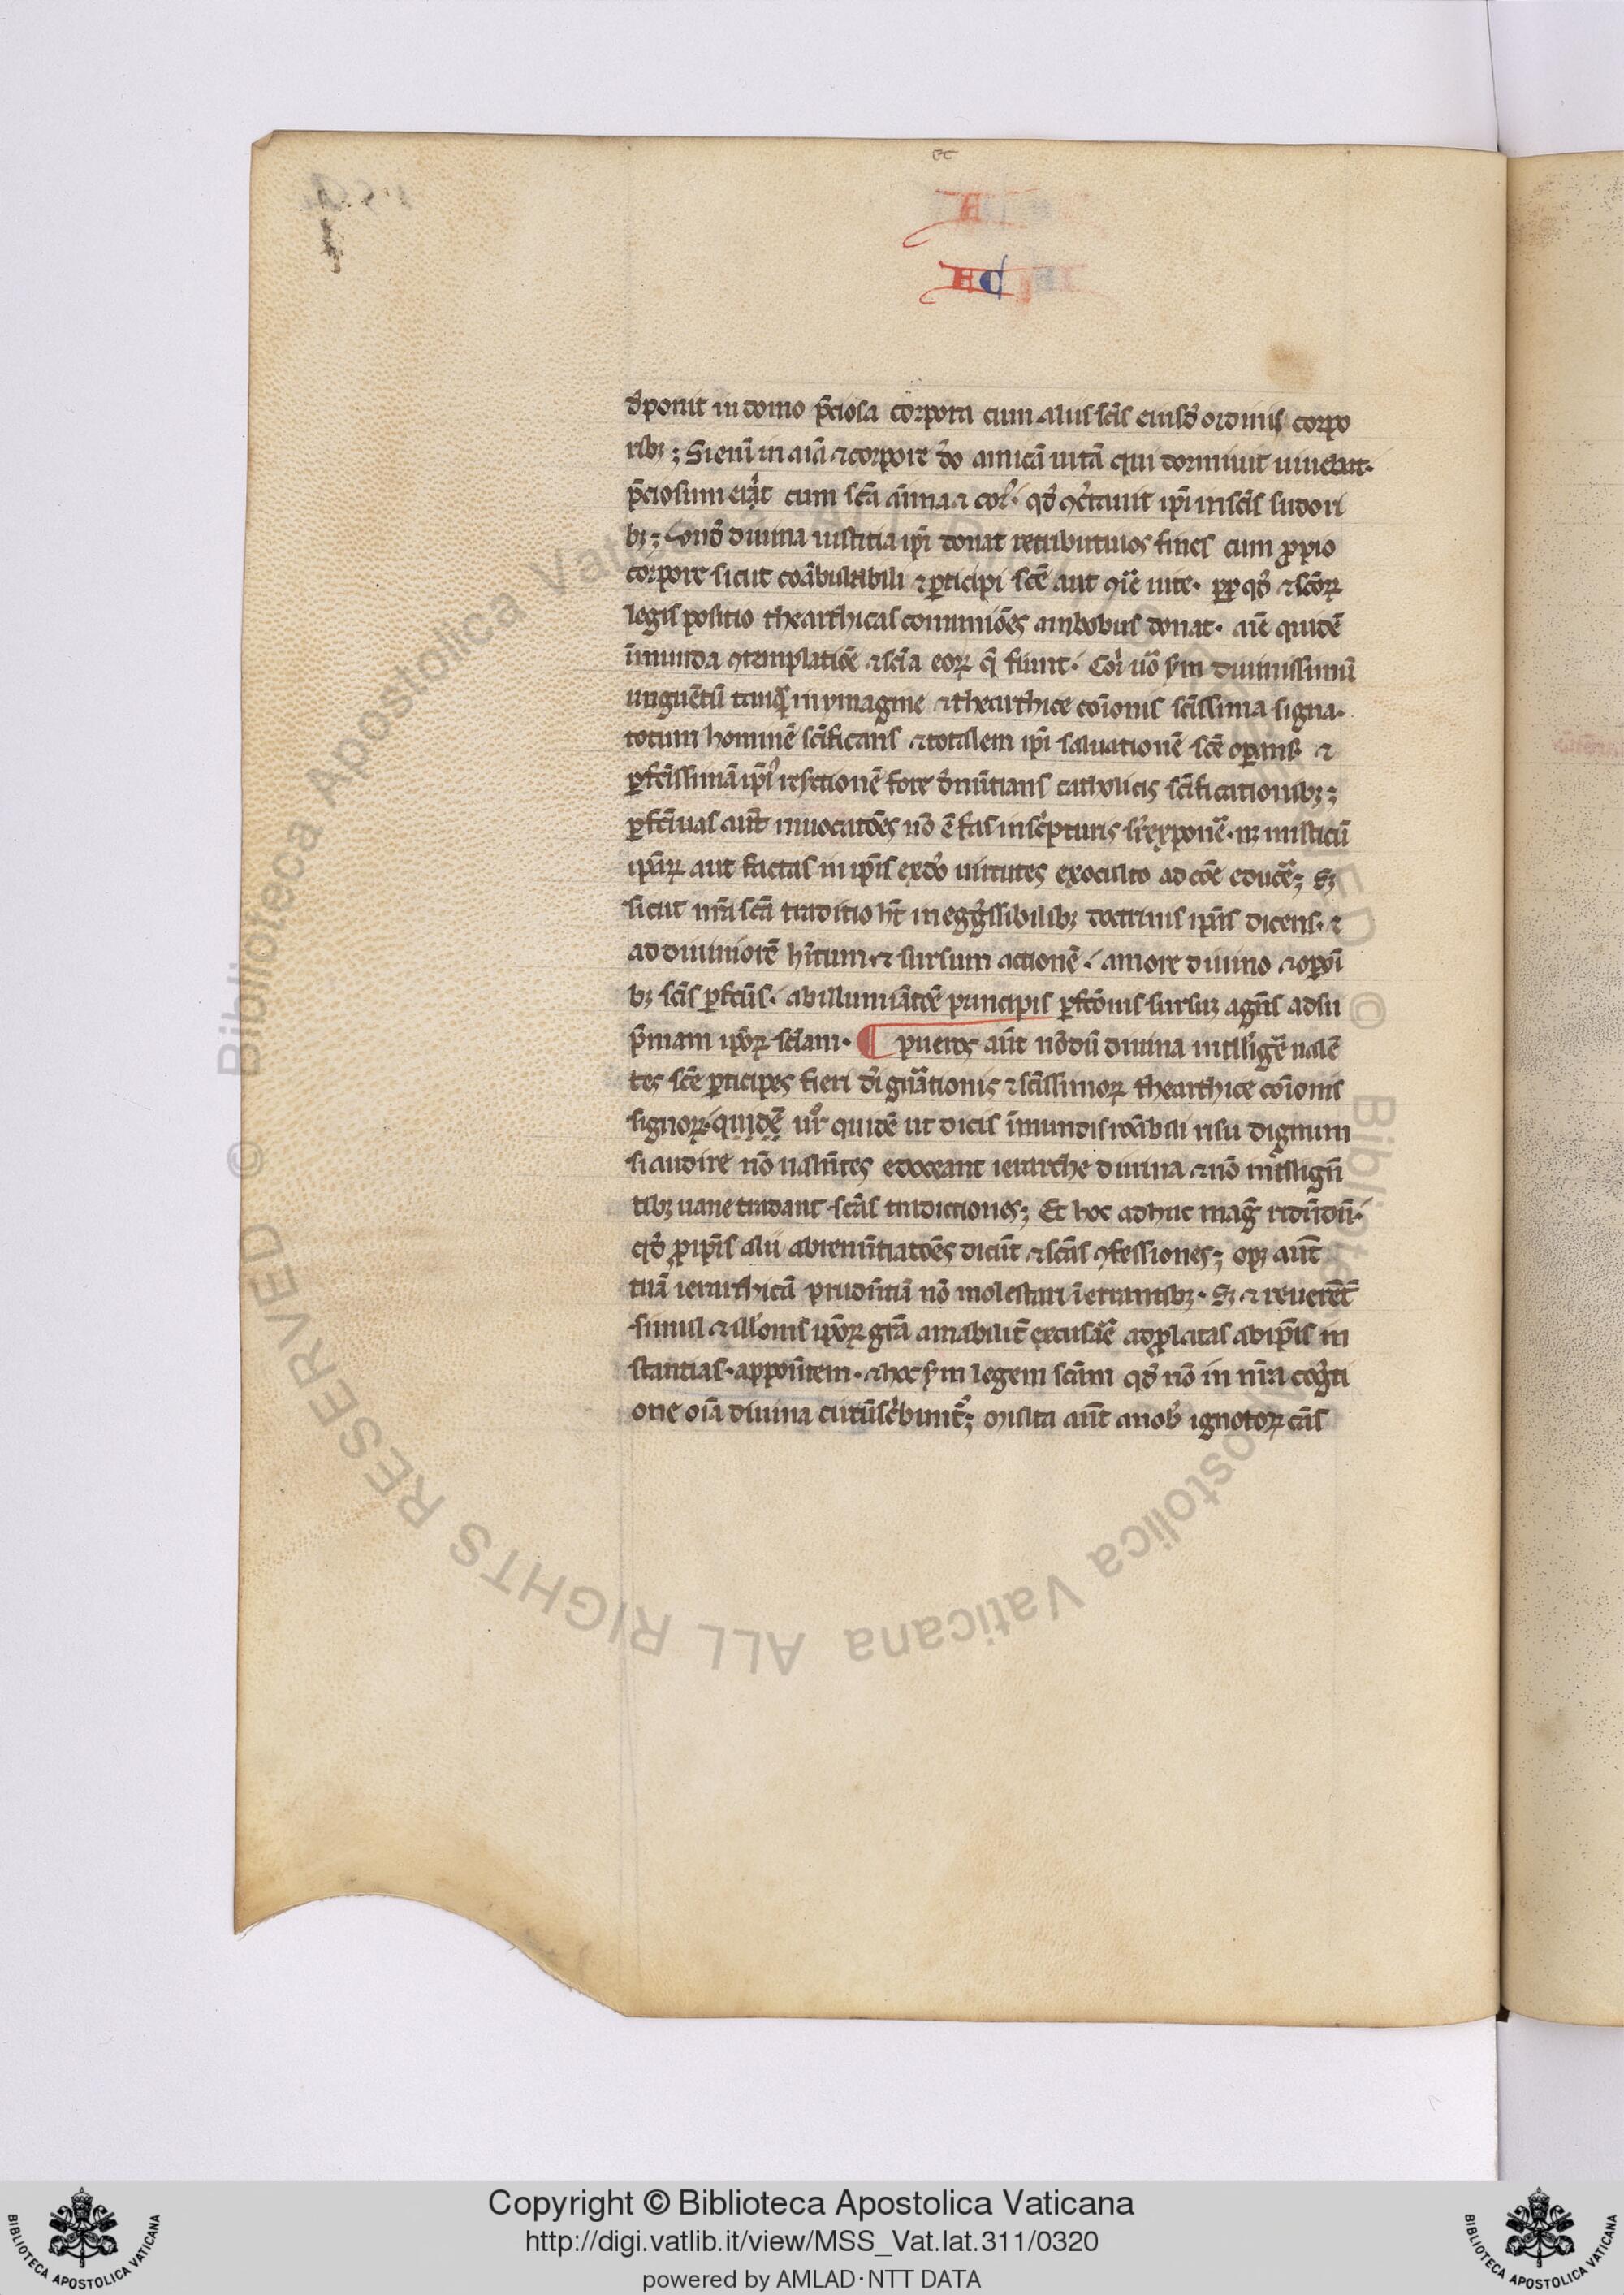 EC
EC
dr̄ponit in domo p̄ciosa corpora cum aliis scīs eiusd̄ ordinis corpo
rib; ; Si enī in aīa ⁊ corpore dō amicā uitā qui dormiuit
p̄ciosum erit cum scā anima ⁊ cor̄. qd̄ ꝯc̄tauit ip̄i in scīs sudori
b; ; Vnd̄ diuina iustitia ip̄i donat retributiuos fines cum ꝓpio
corpore sicut coābulabili ⁊ ꝑticipi scē aut ꝯ̄ie uite. ꝓp̄ qd̄ ⁊ scōꝝ
legis positio thearthicas comuniōes ambobus donat. aīe quidē
īmunda ꝯtemplatiōe ⁊ scīa eoꝝ q̄ fiunt. Cor̄i uō s̄m diuinissimū
unguētū tanq̄ in ymagine ⁊ thearthice coīonis scīssima signa.
totum hominē scīficans ⁊ totalem ip̄i saluationē scē oꝑans. ⁊
ꝑfcīssimā ip̄i resrectionē fore d̄nūtians catholicis scīficationib; ;
ꝑfcīuas aūt inuocatōes nō ē fas in sc̄pturis īr̄exponē̄. n; misticū
ip̄aꝝ aut factas in ip̄is ex dō uirtutes ex oculto ad cōe educē̄; S;
sicut nr̄a scā traditio hт̄ in egr̄ssibilib; doctrinis ip̄as dicens. ⁊
ad diuiniorē h̄itum ⁊ sursum actionē. amore diuino ⁊ oꝑōi
b; scīs ꝑfcūs. ab illumīatōe principis ꝑfcōnis sursu; agn̄s ad su
p̄mam ip̄oꝝ scīam. ¶ pueros aūt nōdū diuina intelligē̄ ualē
tes scē ꝑticipes fieri diḡnatōnis ⁊ scīssimoꝝ thearthice coīonis
signoꝝ. quidē ur̄ quidē ut dicis īmundis rōabili risu dignum
si audire nō ualn̄tes edoceant ierarche diuina ⁊ nō intellign̄
tib; uane tradant scās tradictiones; Et hoc adhuc maḡ ridn̄dū.
qd̄ ꝓ ip̄is alii abrenūtiatōes dicūt ⁊ scās ꝯfessiones; oꝫ aūt
tuā ierarthicā prudn̄tiā nō molestari ī errantib;. S; ⁊ reuerēt̄
simul ⁊ illōnis ip̄oꝝ grā amabilit̄ excusāe ad ꝓlatas ab ip̄is in
stantias. apponentem. ⁊ hoc s̄m legem scām qd̄ nō in nr̄a cogn̄ti
one oīa diuina circūsc̄bunt̄; multa aūt a nob̄ ignotoꝝ cās
Copyright © Biblioteca Apostolica Vaticana
http://digi.vatlib.it/view/MSS_Vat.lat.311/0320
powered by AMLAD·NTT DATA
© Biblioteca Apostolica Vaticana ALL RIGHTS RESERVED
BIBLIOTECA APOSTOLICA VATICANA
BIBLIOTECA APOSTOLICA VATICANA